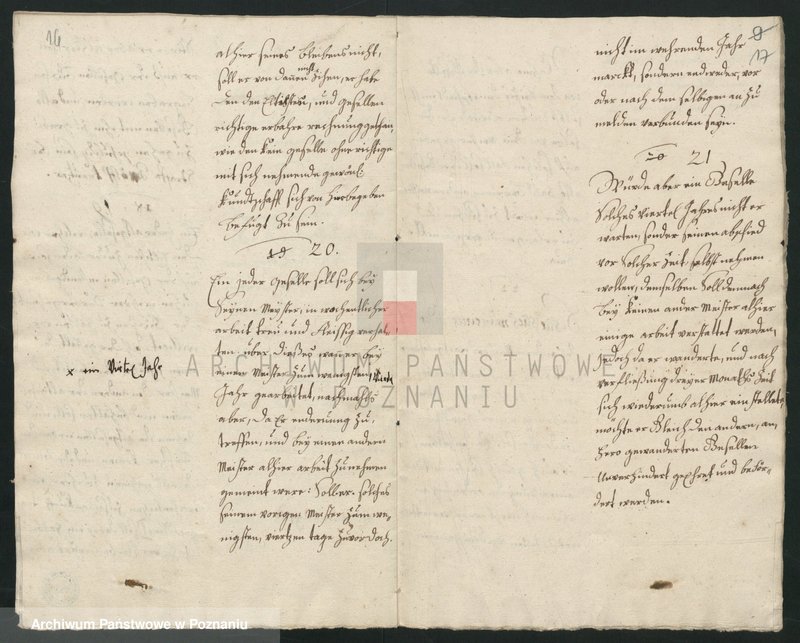 16
athier seines bleibens nicht,
soll er von dannen nicht ziehen, er habe
den den Eltisten, und gesellen
richtige erbahre rechnung gethan,
wie den kein geselle ohne richtige
mit sich nehmende
kundtschafft sich von begeben
befügt zu sein.
19 20.
Ein jeder geselle soll sich bey
seynem Meyster, in wochentlicher
arbeit treu und fleissig verhal-
ten, über dieses wan er bey
einem Meister zum wenigsten
x ein Virtel Jahr
Jahr gearbeitet, nachmahls
aber, da Er enderung zu
treffen, und bey einen andern
Meister alhier arbeit zu nehmen
gemeint were: Soll er solches
seinem vorigen Meister zum we-
nigsten, viertzen tage zuvor doch.
9
17
nicht im wehrenden Jahr
marckt, sondern endweder, vor
oder nach dem selbigen an zu
melden verbunden seyn.
20 21
Würde aber ein Geselle
solches viertel Jahres nicht er
warten, sonder seinen abschied
vor solcher zeit, selbst nehmen
wollen, demselben soll demnach
bey keinen ander Meister alhier
einige arbeit verstattet werden,
jedoch da er wanderte, und nach
verfliessung dreyer Monaths zeit
sich wiederumb alhier ein stellete,
möchte er gleich den andern, an-
hero gewanderten Gesellen
unverhindert und beför-
dert werden.
ARCHIWUM PAŃSTWOWE
W POZNANIU
Archiwum Państwowe w Poznaniu